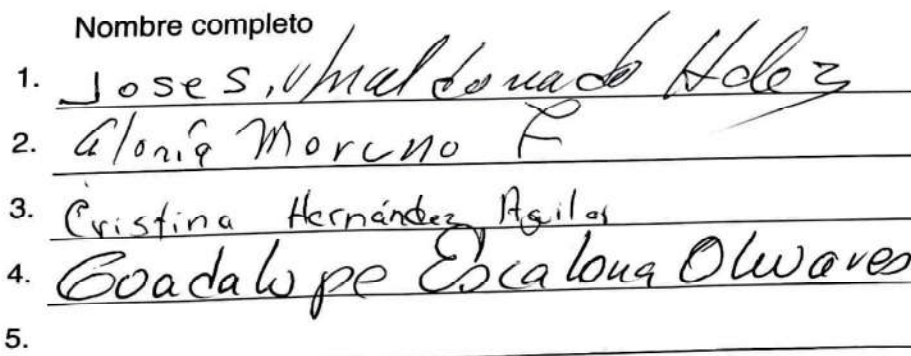 Nombre completo
1. Jose S. Maldonado Hdez
2. Gloria Moreno F
3. Cristina Hernández Aguilar
4. Guadalupe Escalona Olivares
5.